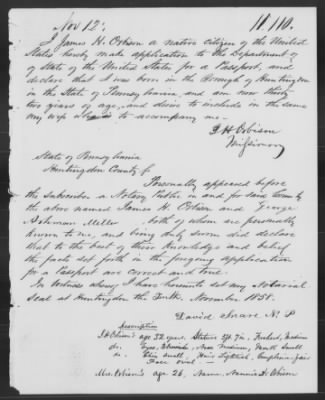 Nov 12.
11.110.
I James H. Orbison a native citizen of the United
States hereby make application to the Department of
of State of the United States for a Passport, and
declare that I was born in the Borough of Huntingdon
in the State of Pennsylvania, and am now thirty
two years of age, and desire to include in the same
my wife to accompany me.
J H Orbison
Missionary
State of Pennsylvania
Huntingdon County
Personally appeared before
the subscriber a Notary Public in and for said County
the above named James H. Orbison and George
Ashman Miller, both of whom are personally
known to me, and being duly sworn did declare
that to the best of their knowledge and belief
the facts set forth in the foregoing application
for a Passport are correct and true.
In witness whereof I have hereunto set my Notarial
Seal at Huntingdon the November 1858.
David Snare N. P
Description
J H Orbison's age 32 years, Stature 5 ft. 7 in, Forehead, Medium
do. Eyes, Nose Medium, Mouth Small
do. Chin small, Hair Lightish, Complexion fair
Face oval —
Mrs. Orbison's age 26, Name, Nannie H. Orbison